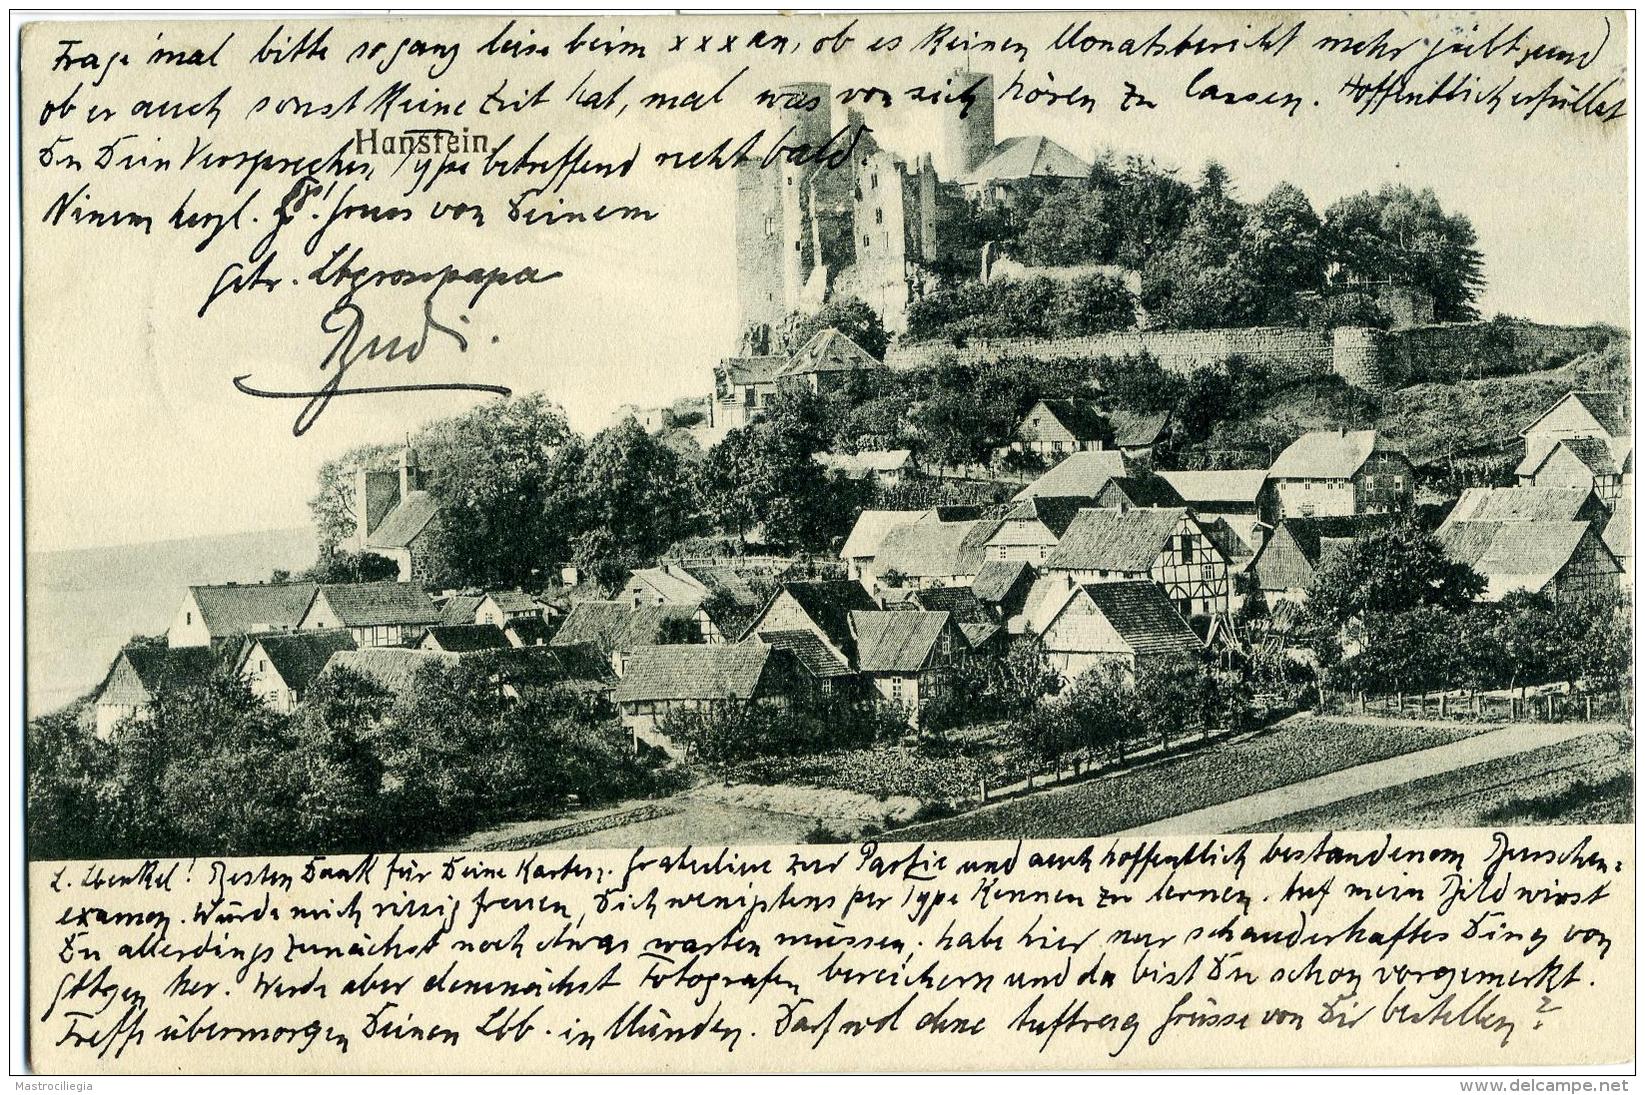 Frage 'mal bitte so ganz leise beim xxx an, ob es keinen Monatsbericht mehr gibt, und
ob er auch sonst keine Zeit hat, mal was von sich hören zu lassen. Hoffentlich erfüllst
Hanstein.
Du Dein Versprechen, Type betreffend recht bald.
Nimm herzl. Gruss von Deinem
getr. Lbgrosspapa
Rudi.
L. Lbenkel! Besten Dank für Deine Karten. Gratuliere zur Partie und auch hoffentlich bestandenem Burschen-
examen. Würde mich riesig freuen, Dich wenigstens per Type kennen zu lernen. Auf mein Bild wirst
Du allerdings zunächst noch etwas warten müssen; habe hier nur schauderhaftes Ding von
Gttgen her. Werde aber demnächst Fotografen bereichern und da bist Du schon vorgemerkt.
Treffe übermorgen Deinen Lbb. in Münden. Darf wol ohne Auftrag Grüsse von Dir bestellen?
Mastrociliegia
www.delcampe.net